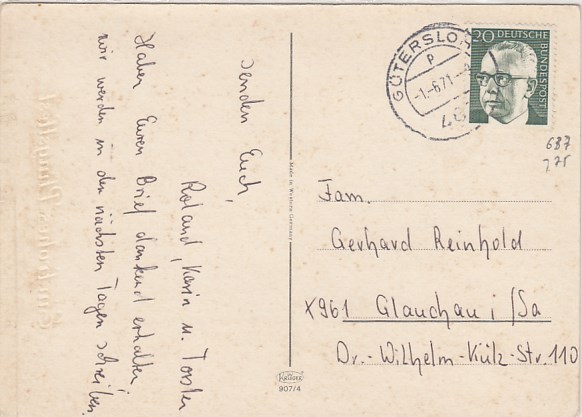 senden Euch,
Roland, Karin u. Torsten
Haben Euren Brief dankend erhalten,
wir werden in den nächsten Tagen schreiben.
GÜTERSLOH
P
-1.-6.71.-
20 DEUTSCHE
BUNDESPOST
687
Made in Western Germany
Fam.
Gerhard Reinhold
X961 Glauchau i/Sa
Dr.-Wilhelm-Külz-Str. 110
KRÜGER
907/4